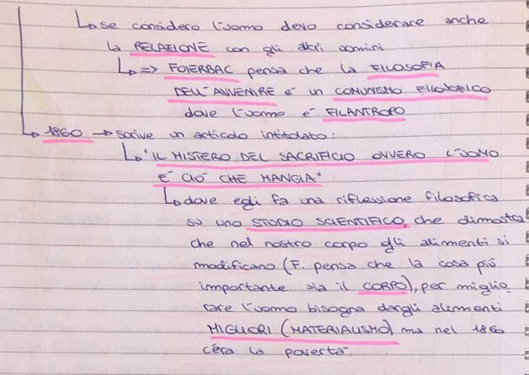 ↳ se considero l'uomo devo considerare anche
la RELAZIONE con gli altri uomini
↳ => FOIERBAC pensa che la FILOSOFIA
DELL'AVVENIRE è un COMUNISMO FILOSOFICO
dove l'uomo è FILANTROPO
↳ 1860 → scrive un articolo intitolato:
↳ "IL MISTERO DEL SACRIFICIO OVVERO L'UOMO
È CIÒ CHE MANGIA"
↳ dove egli fa una riflessione filosofica
su uno STUDIO SCIENTIFICO, che dimostra
che nel nostro corpo gli alimenti si
modificano (F. pensa che la cosa più
importante sia il CORPO), per miglio
rare l'uomo bisogna dargli alimenti
MIGLIORI (MATERIALISMO) ma nel 1860
c'era la povertà